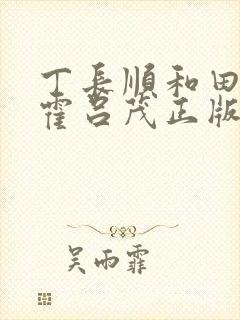 丁長順和田
霍呂茂正版
吴雨霏